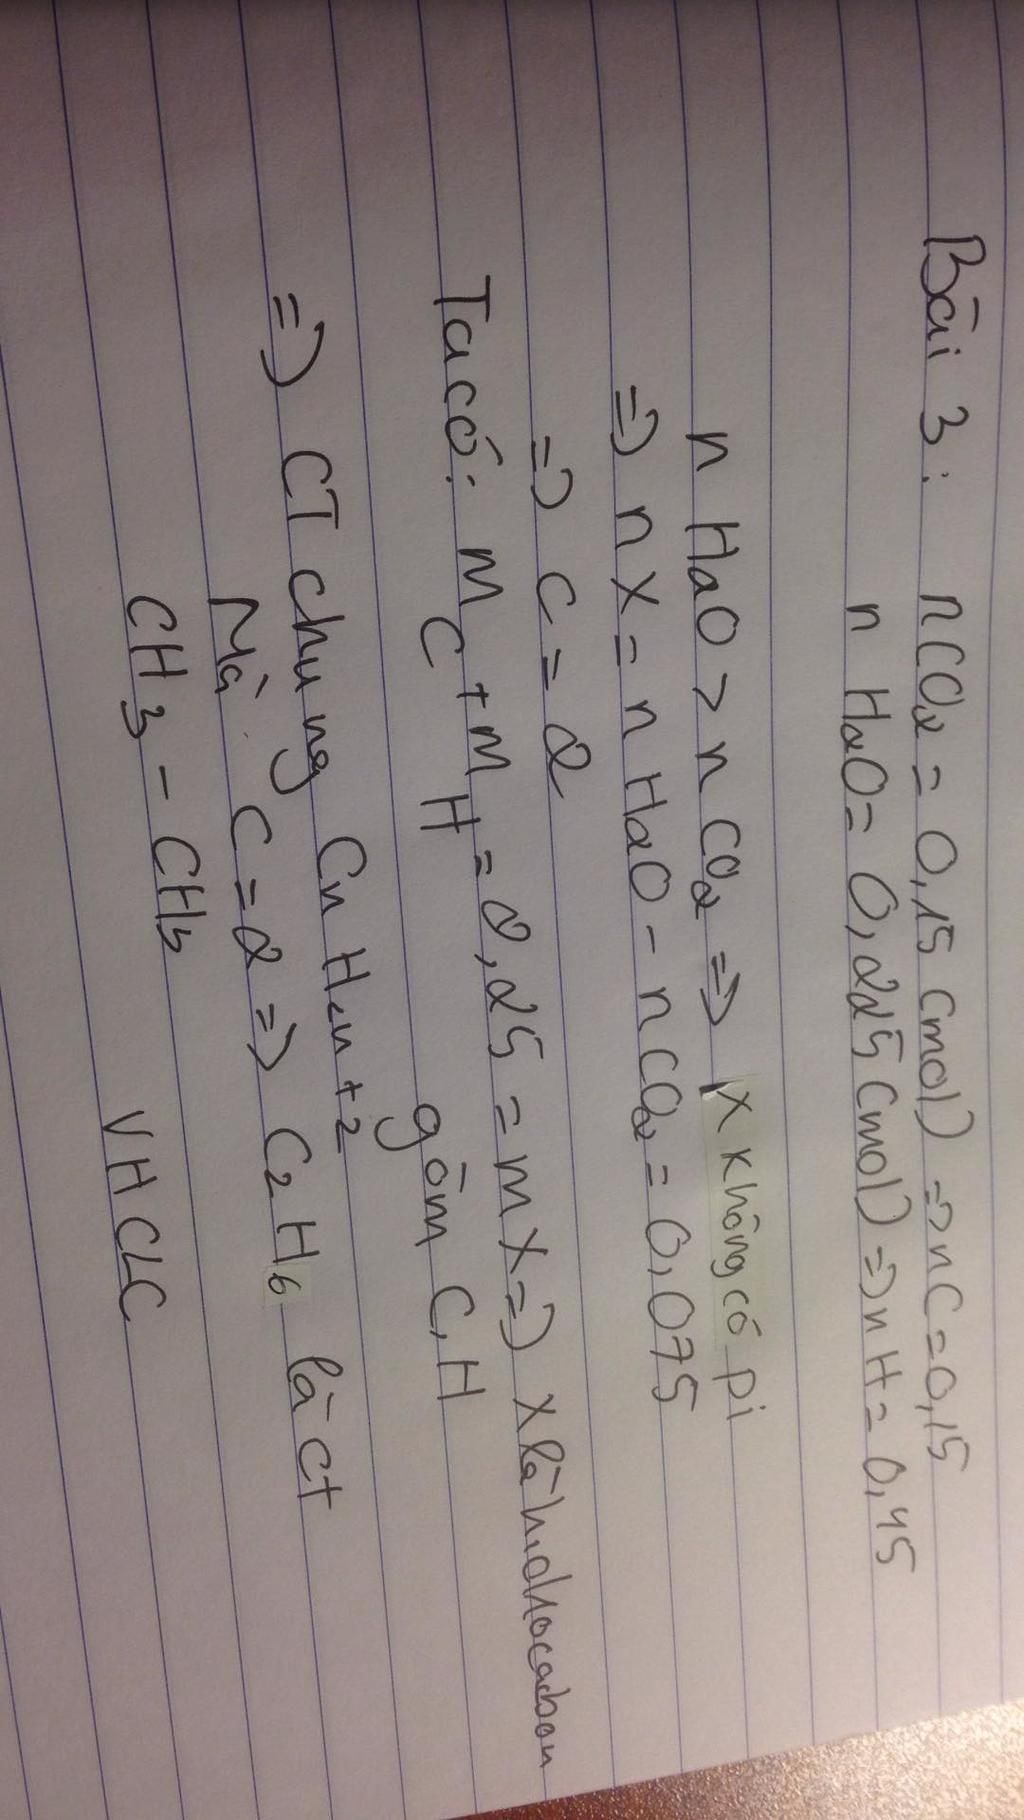 Bài 3: nCO2 = 0,15 (mol) => nC = 0,15
n H2O = 0,225 (mol) => nH = 0,45
n H2O > n CO2 => X không có pi
=> n X = n H2O - n CO2 = 0,075
=> C = 2
Ta có: mC + mH = 2,25 = mX => X là hidrocacbon
gồm C, H
=> CT chung CnH2n+2
Mà C = 2 => C2H6 là ct
CH3 - CH3 VHCLC